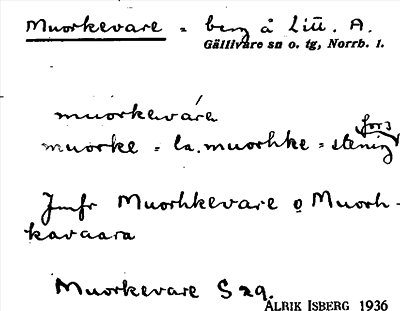 Muorkevare = berg å Lill. A.
Gällivare sn o. tg, Norrb. l.
muorkevárē
fors
muorke = la. muorhke = stenig
Jmfr Muorhkevare o Muorh-
kavaara
Muorkevare S 29.
ALRIK ISBERG 1936